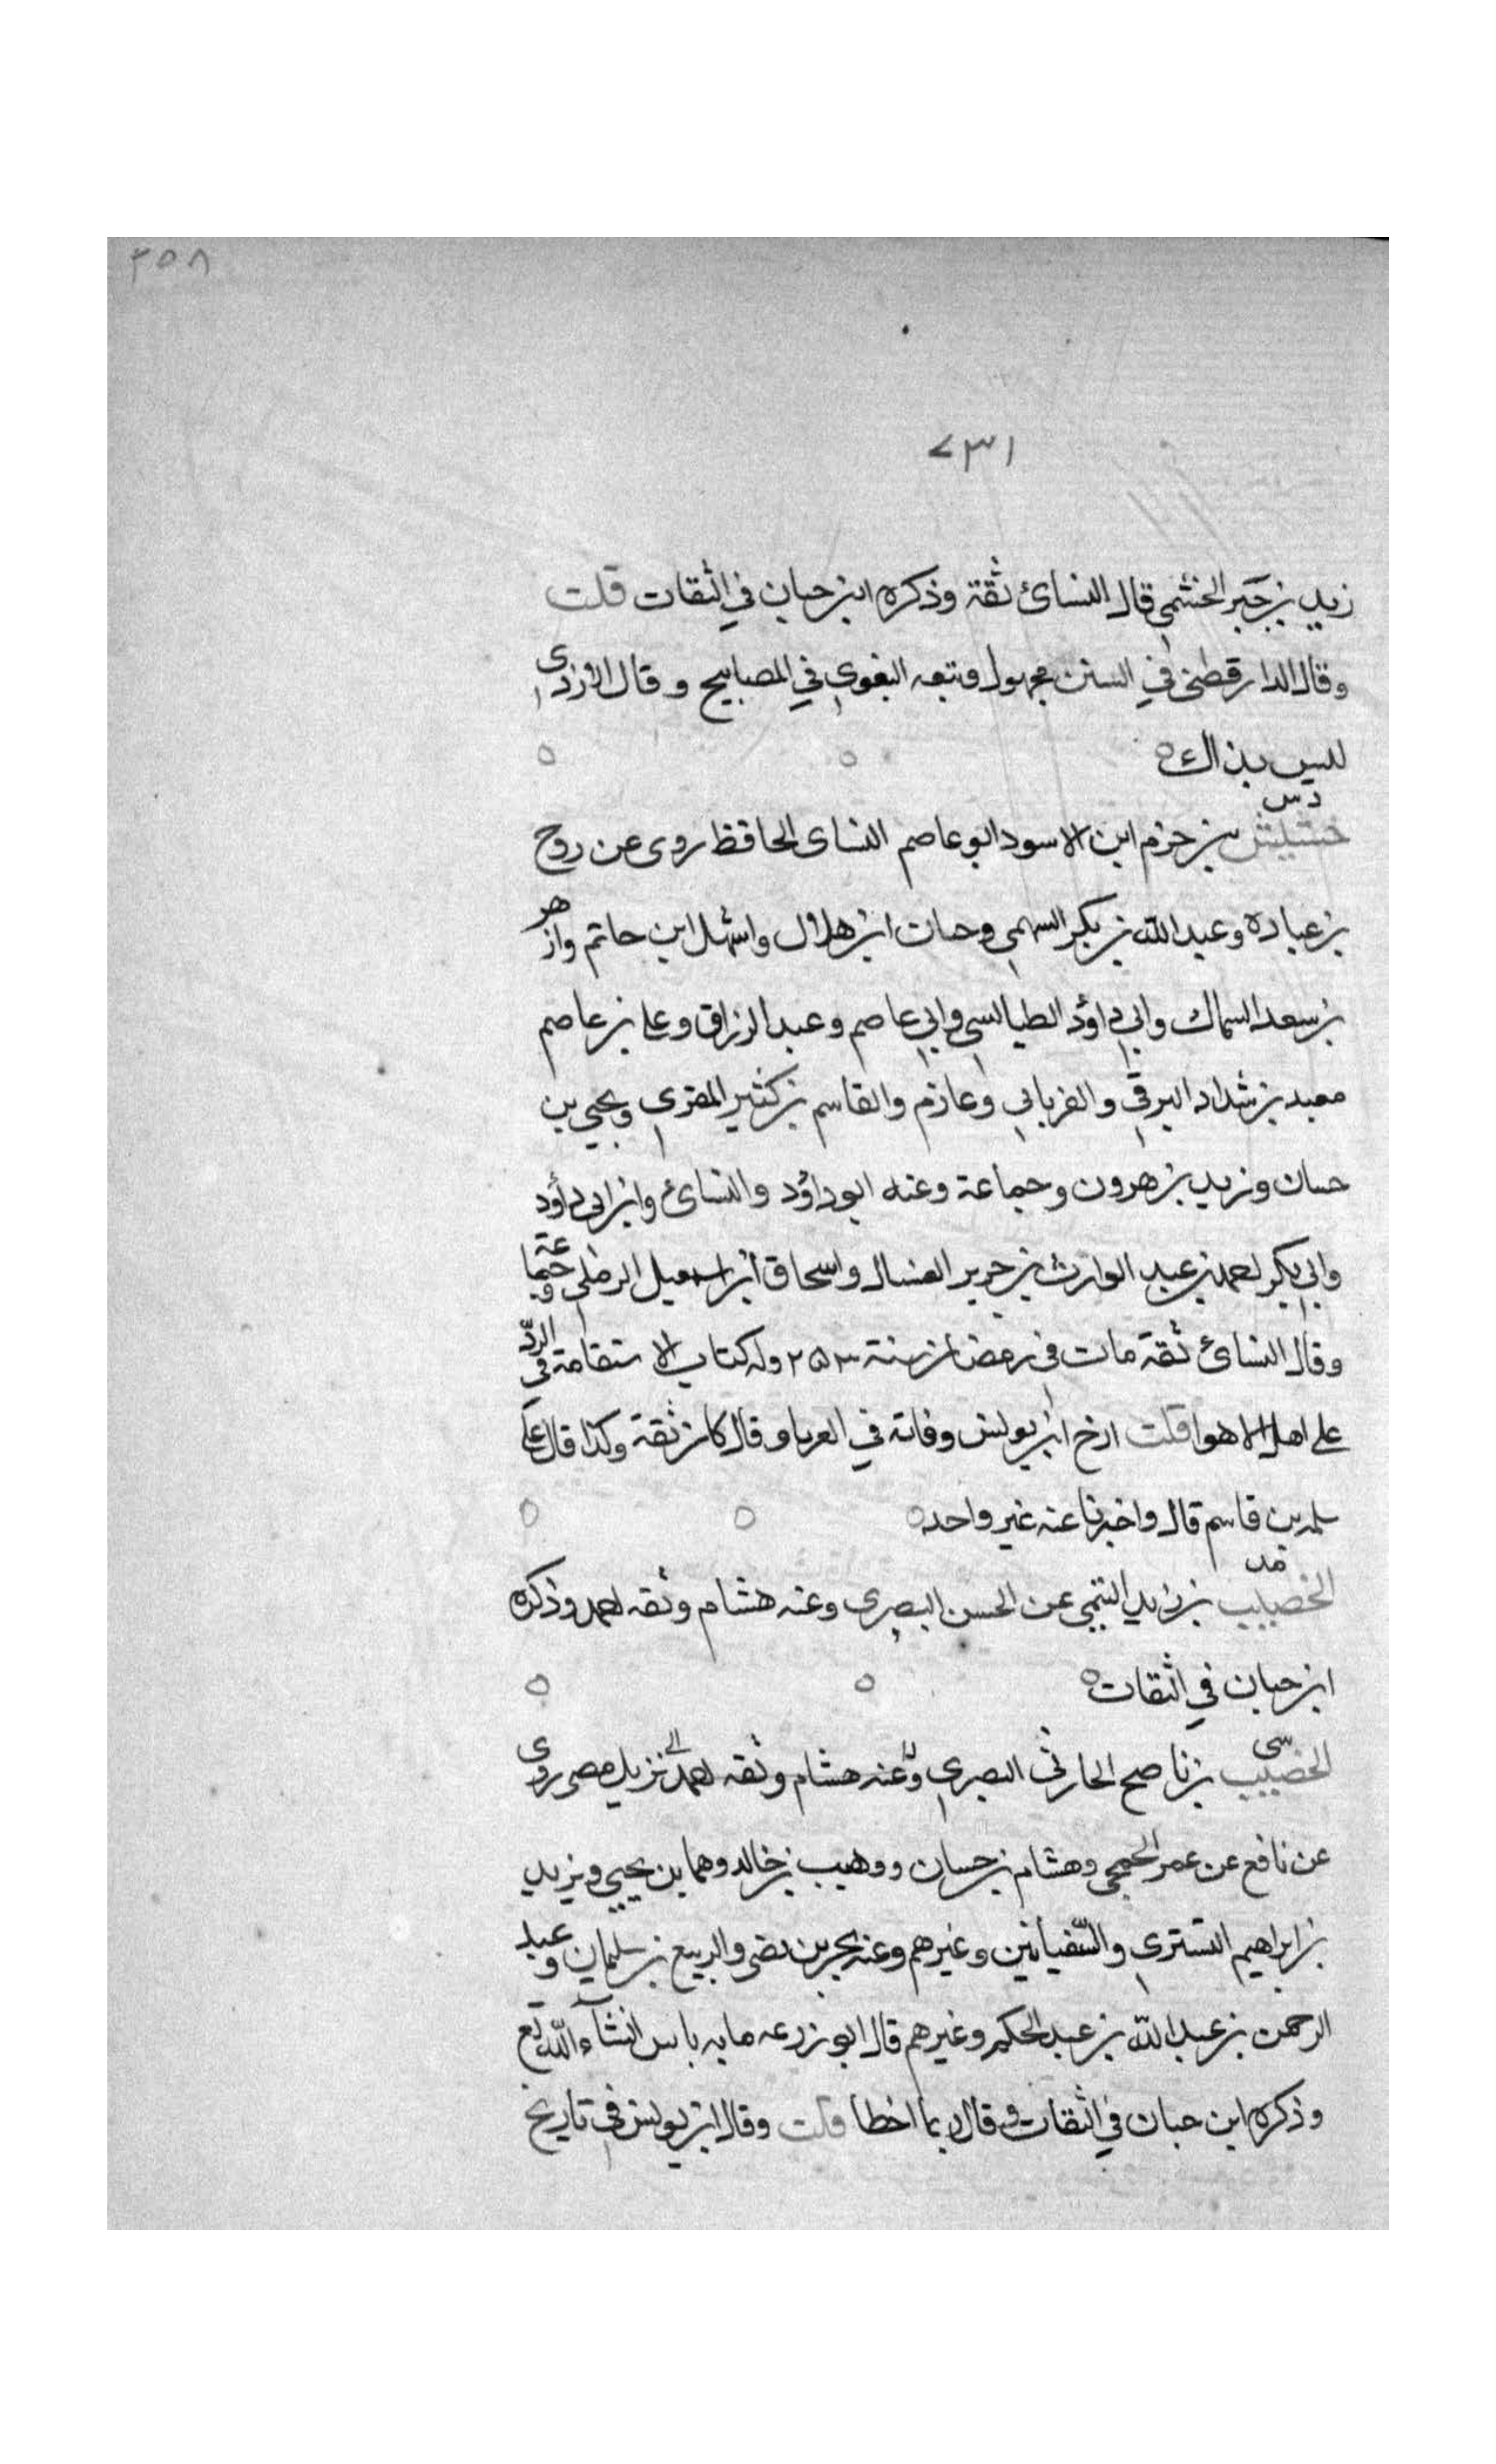 ٣٥٨
٧٣١
زيد بن جبير الخشمي قال النسائ ثقة وذكره ابن حبان في الثقات قلت
وقال الدارقطني في السنن مجهول وتبعه البغوي في المصابيح وقال الازدي
ليس بذاك
د س
خشيش بن خزم ابن الاسود ابو عاصم النساى الحافظ روى عن روح
بن عباده وعبد الله بن بكر السهمي وحبان ابن هلال واشهل ابن حاتم وازهر
بن سعد السمان وابي داؤد الطيالسي وابي عاصم وعبد الرزاق وعلي بن عاصم
معبد بن شداد البرقي والفريابي وعارم والقاسم بن كثير المقري ويحيي بن
حسان ويزيد بن هرون وجماعة وعنه ابو داؤد والنسائ وابن ابى داؤد
وابي بكر احمد بن عبد الوارث بن جرير العسال واسحاق ابن اسمعيل الرملي وجماعة
وقال النسائ ثقة مات في رمضان سنة ٢٥٣ وله كتاب الاستقامة في الردّ
على اهل الاهوا قلت ارخ ابن يونس وفاته في الغربا وقال كان ثقة وكذا قال
سلمه بن قاسم قال واخبرنا عنه غير واحد
مد
الخصيب بن زيد التميمي عن الحسن البصرى وعنه هشام وثقه احمد وذكره
ابن حبان في الثقات
سى
الخصيب بن ناصح الحارثي البصري وعنه هشام وثقه احمد نزيل مصر روى
عن نافع عن عمر الجمحي وهشام بن حسان ووهيب بن خالد وهما بن يحيي ويزيد
بن ابراهيم التسترى والسفيانين وغيرهم وعنه بحر بن نصر والربيع بن سليمان وعبد
الرحمن بن عبد الله بن عبد الحكم وغيرهم قال ابو زرعه ما به باس انشآء الله تع
وذكره ابن حبان في الثقات وقال ربما اخطا قلت وقال ابن يونس في تاريخ